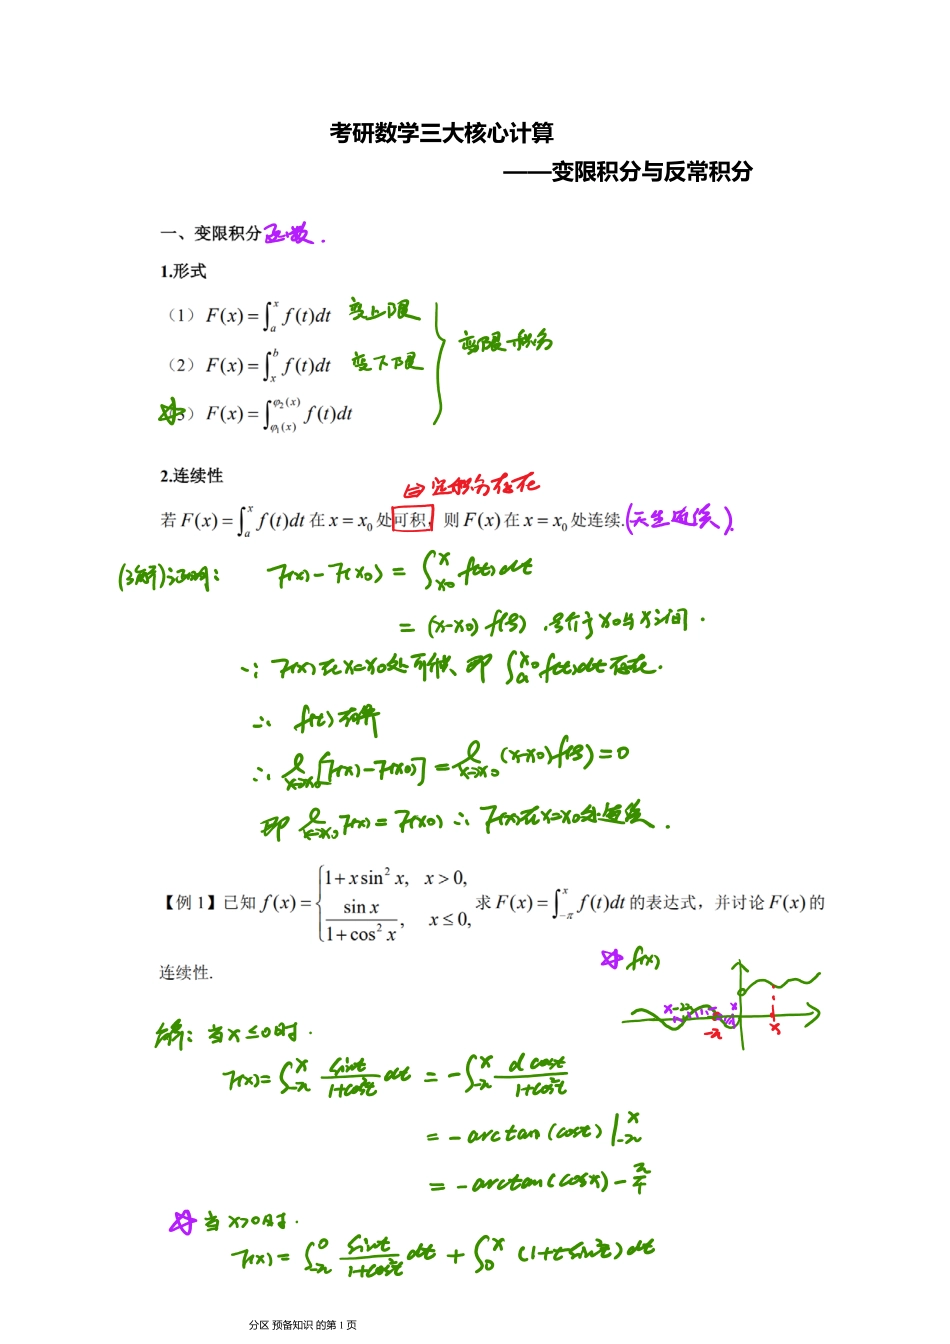 考研数学三大核心计算
——变限积分与反常积分
一、变限积分函数.
1.形式
（1）F(x)=∫_a^x f(t)dt 变上限
（2）F(x)=∫_x^b f(t)dt 变下限 变限积分
（3）F(x)=∫_{φ₁(x)}^{φ₂(x)} f(t)dt
2.连续性
⇔定积分存在
若F(x)=∫_a^x f(t)dt在x=x₀处可积，则F(x)在x=x₀处连续.(天生连续).
(了解)证明: F(x)-F(x₀)=∫_{x₀}^x f(t)dt
=(x-x₀)f(ξ),ξ介于x₀与x之间.
∵F(x)在x=x₀处可积、即∫_a^{x₀}f(t)dt存在.
∴ f(t)有界
∴ lim_{x→x₀}[F(x)-F(x₀)]=lim_{x→x₀}(x-x₀)f(ξ)=0
即 lim_{x→x₀}F(x)=F(x₀)∴F(x)在x=x₀处连续.
【例1】已知f(x)={1+x sin²x, x>0, sin x/(1+cos²x), x≤0, 求F(x)=∫_{-π}^x f(t)dt的表达式，并讨论F(x)的
连续性.
f(x)
x -2π x
-π x
解: 当x≤0时.
F(x)=∫_{-π}^x sint/(1+cos²t) dt = -∫_{-π}^x d cost/(1+cos²t)
=-arctan(cost)|_{-π}^x
=-arctan(cosx)-π/4
当x>0时.
F(x)=∫_{-π}^0 sint/(1+cos²t) dt+∫_0^x (1+t sin²t)dt
分区 预备知识 的第 1 页